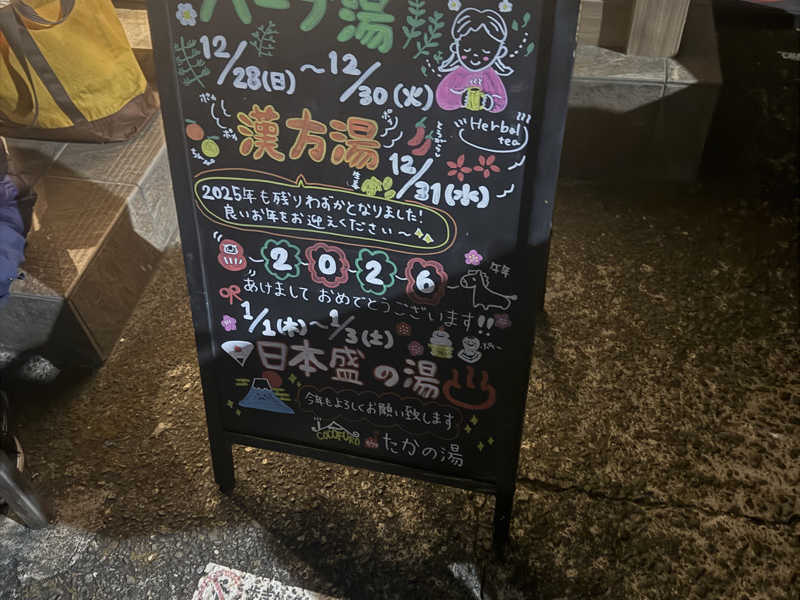 ハーブ湯
12/28(日)～12/30(火)
Herbal tea
漢方湯
とうがらし
生姜
12/31(水)
2025年も残りわずかとなりました!
良いお年をお迎えください～
2026
午年
あけまして おめでとうございます!!
1/1(木)～1/3(土)
日本盛の湯
今年もよろしくお願い致します
COCOFURO たかの湯